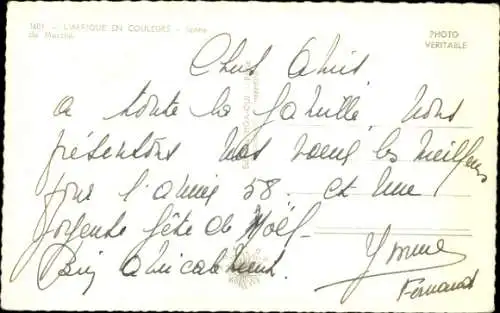 1401 - L'AFRIQUE EN COULEURS - Scène
de Marché
PHOTO
VÉRITABLE
Chers Amis
a toute la famille, nous
présentons nos voeux les meilleurs
pour l'année 58. et une
joyeuse fête de Noël.
Bien amicalement.
Yvonne
Fernand